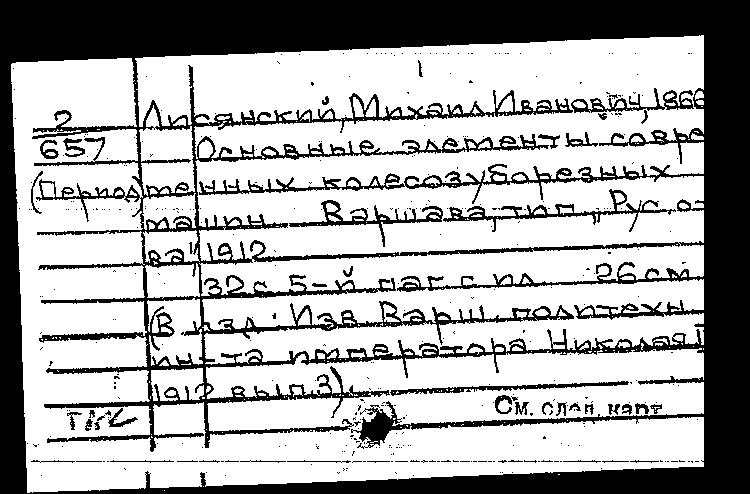 2 Лисянский, Михаил Иванович, 1866
657 Основные элементы совре-
(Период) менных колесозуборезных
машин Варшава, тип. „Рус. о-
ва", 1912
32 с 5-й паг с ил 26 см
(В изд: Изв Варш. политехн
ин-та императора Николая II
1912 вып.3).
См. след. карт